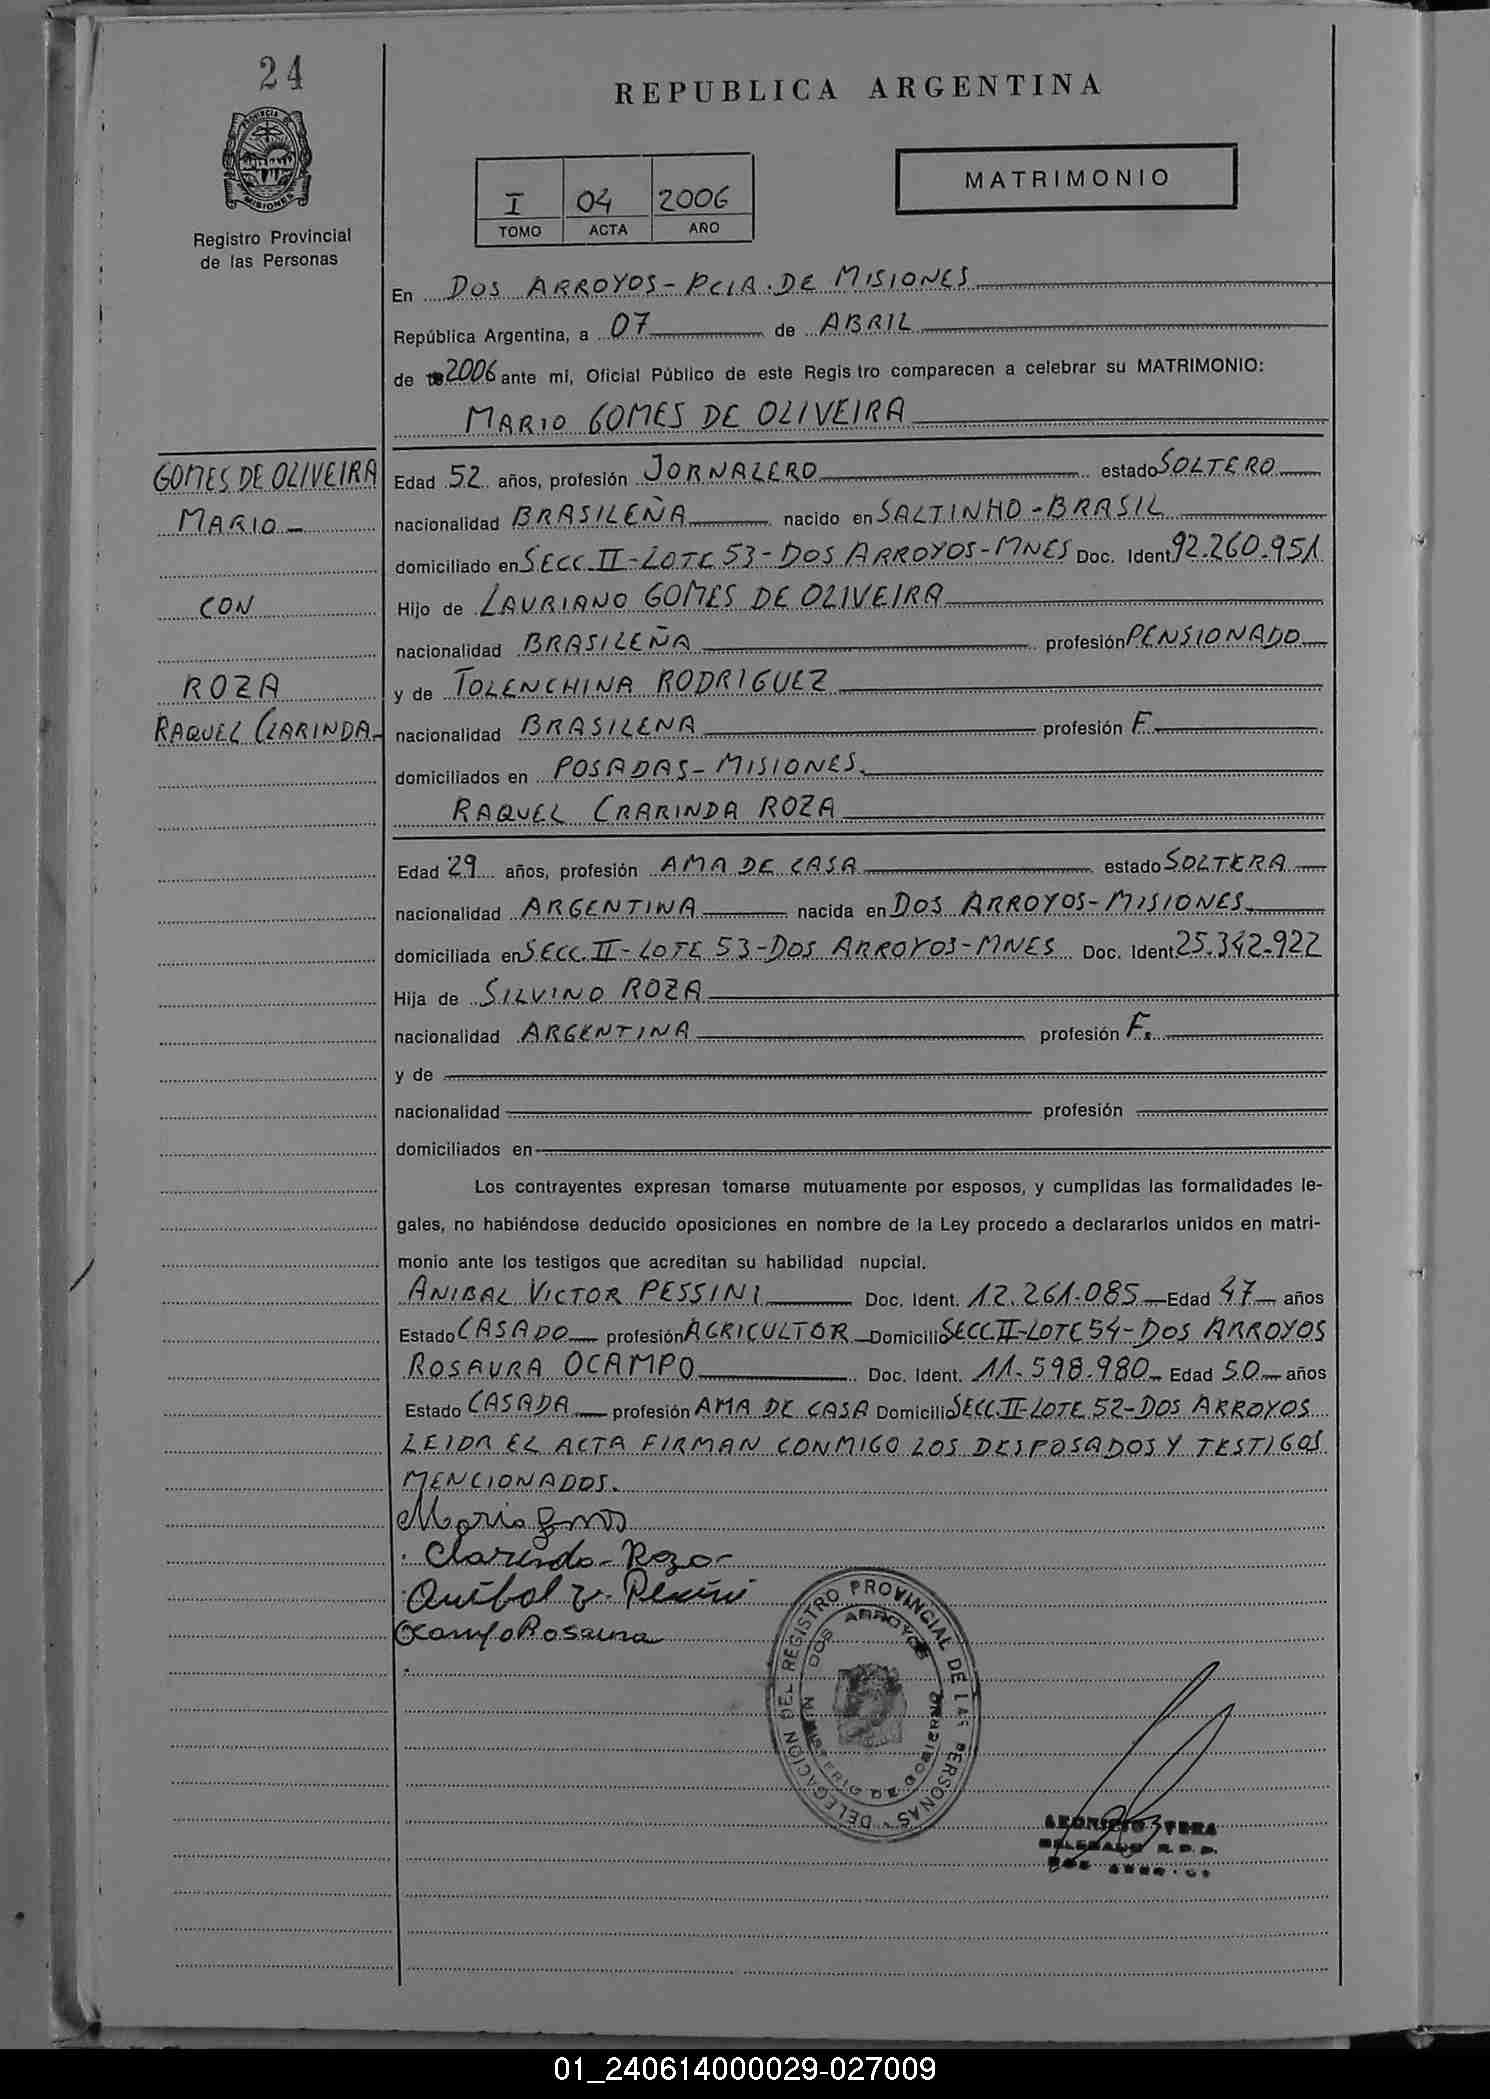 24
PROVINCIA DE
MISIONES
Registro Provincial
de las Personas
REPUBLICA ARGENTINA
I 04 2006
TOMO ACTA AÑO
MATRIMONIO
En DOS ARROYOS - PCIA. DE MISIONES
República Argentina, a 07 de ABRIL
de 2006 ante mí, Oficial Público de este Regis tro comparecen a celebrar su MATRIMONIO:
MARIO GOMES DE OLIVEIRA
GOMES DE OLIVEIRA
MARIO -
CON
ROZA
RAQUEL CLARINDA -
Edad 52 años, profesión JORNALERO estado SOLTERO
nacionalidad BRASILEÑA nacido en SALTINHO - BRASIL
domiciliado en SECC. II - LOTE 53 - DOS ARROYOS - MNES Doc. Ident. 92.260.951
Hijo de LAURIANO GOMES DE OLIVEIRA
nacionalidad BRASILEÑA profesión PENSIONADO
y de TOLENCHINA RODRIGUEZ
nacionalidad BRASILENA profesión F.
domiciliados en POSADAS - MISIONES.
RAQUEL CRARINDA ROZA
Edad 29 años, profesión AMA DE CASA estado SOLTERA
nacionalidad ARGENTINA nacida en DOS ARROYOS - MISIONES
domiciliada en SECC. II - LOTE 53 - DOS ARROYOS - MNES Doc. Ident. 25.342.922
Hija de SILVINO ROZA
nacionalidad ARGENTINA profesión F.
y de
nacionalidad profesión
domiciliados en
Los contrayentes expresan tomarse mutuamente por esposos, y cumplidas las formalidades le-
gales, no habiéndose deducido oposiciones en nombre de la Ley procedo a declararlos unidos en matri-
monio ante los testigos que acreditan su habilidad nupcial.
ANIBAL VICTOR PESSINI Doc. Ident. 12.261.085 Edad 47 años
Estado CASADO profesión AGRICULTOR Domicilio SECC II - LOTE 54 - DOS ARROYOS
ROSAURA OCAMPO Doc. Ident. 11.598.980 Edad 50 años
Estado CASADA profesión AMA DE CASA Domicilio SECC. II - LOTE 52 - DOS ARROYOS
LEIDA EL ACTA FIRMAN CONMIGO LOS DESPOSADOS Y TESTIGOS
MENCIONADOS.
Mario
Clarinda - Roza -
Anibal V. Pessini
Ocampo Rosaura
DELEGACIÓN DEL REGISTRO PROVINCIAL DE LAS PERSONAS -
DOS ARROYOS
MINISTERIO DE GOBIERNO
VERA
DELEGADO R. P. P.
01_240614000029-027009